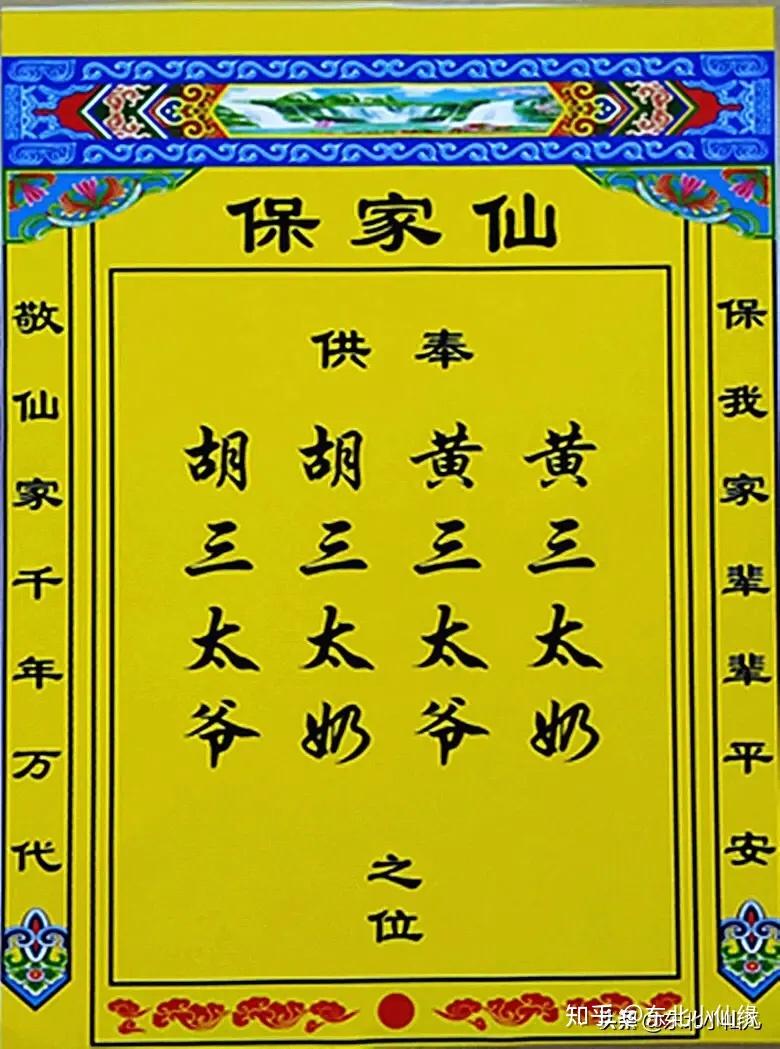 保家仙
供奉
胡三太爷
胡三太奶
黄三太爷
黄三太奶
之位
敬仙家千年万代
保我家辈辈平安
知乎 @东北小仙缘